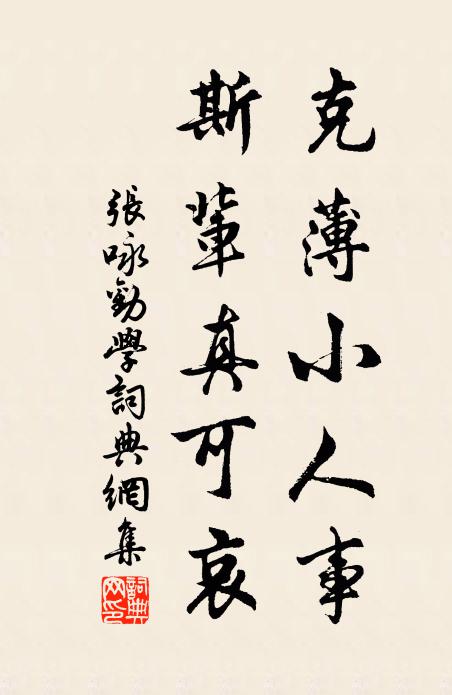 克薄小人事
斯輩真可哀
張咏勸學詞典網集
詞典網印